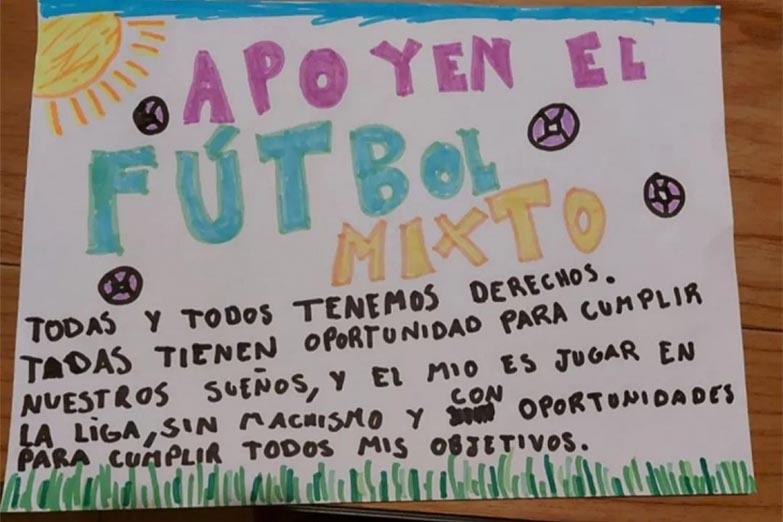 APOYEN EL
FÚTBOL
MIXTO
TODAS Y TODOS TENEMOS DERECHOS.
TODAS TIENEN OPORTUNIDAD PARA CUMPLIR
NUESTROS SUEÑOS, Y EL MIO ES JUGAR EN
LA LIGA, SIN MACHISMO Y CON OPORTUNIDADES
PARA CUMPLIR TODOS MIS OBJETIVOS.